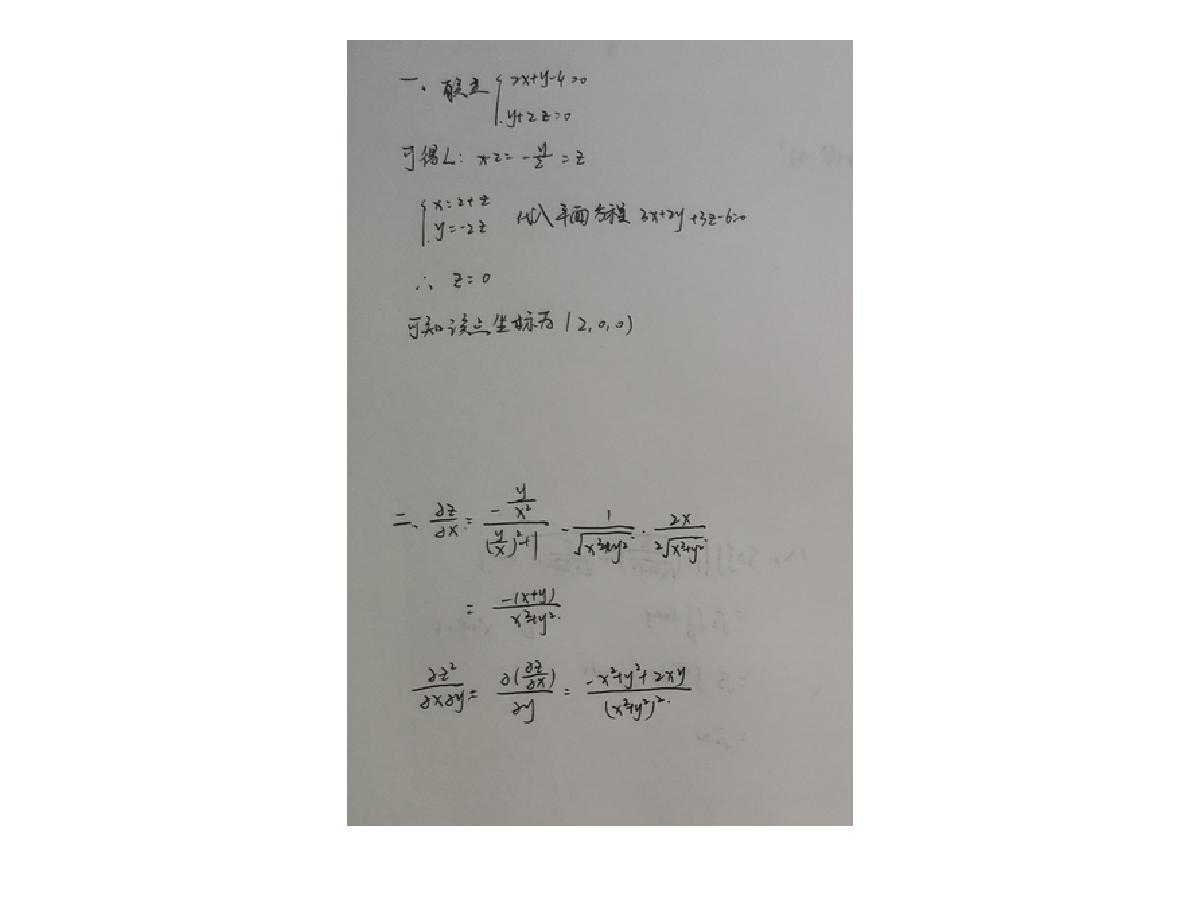 一、联立 { 2x+y-4=0
y+2z=0
可得L: x-2=-y/2=z
{ x=2+z
y=-2z 代入平面方程 3x+2y+3z-6=0
∴ z=0
可知该点坐标为 (2,0,0)
二、∂z/∂x = (-y/x²)/((y/x)²+1) - 1/√(x²+y²) · 2x/(2√(x²+y²))
= -(x+y)/(x²+y²)
∂z²/∂x∂y = ∂(∂z/∂x)/∂y = (-x²+y²+2xy)/(x²+y²)²